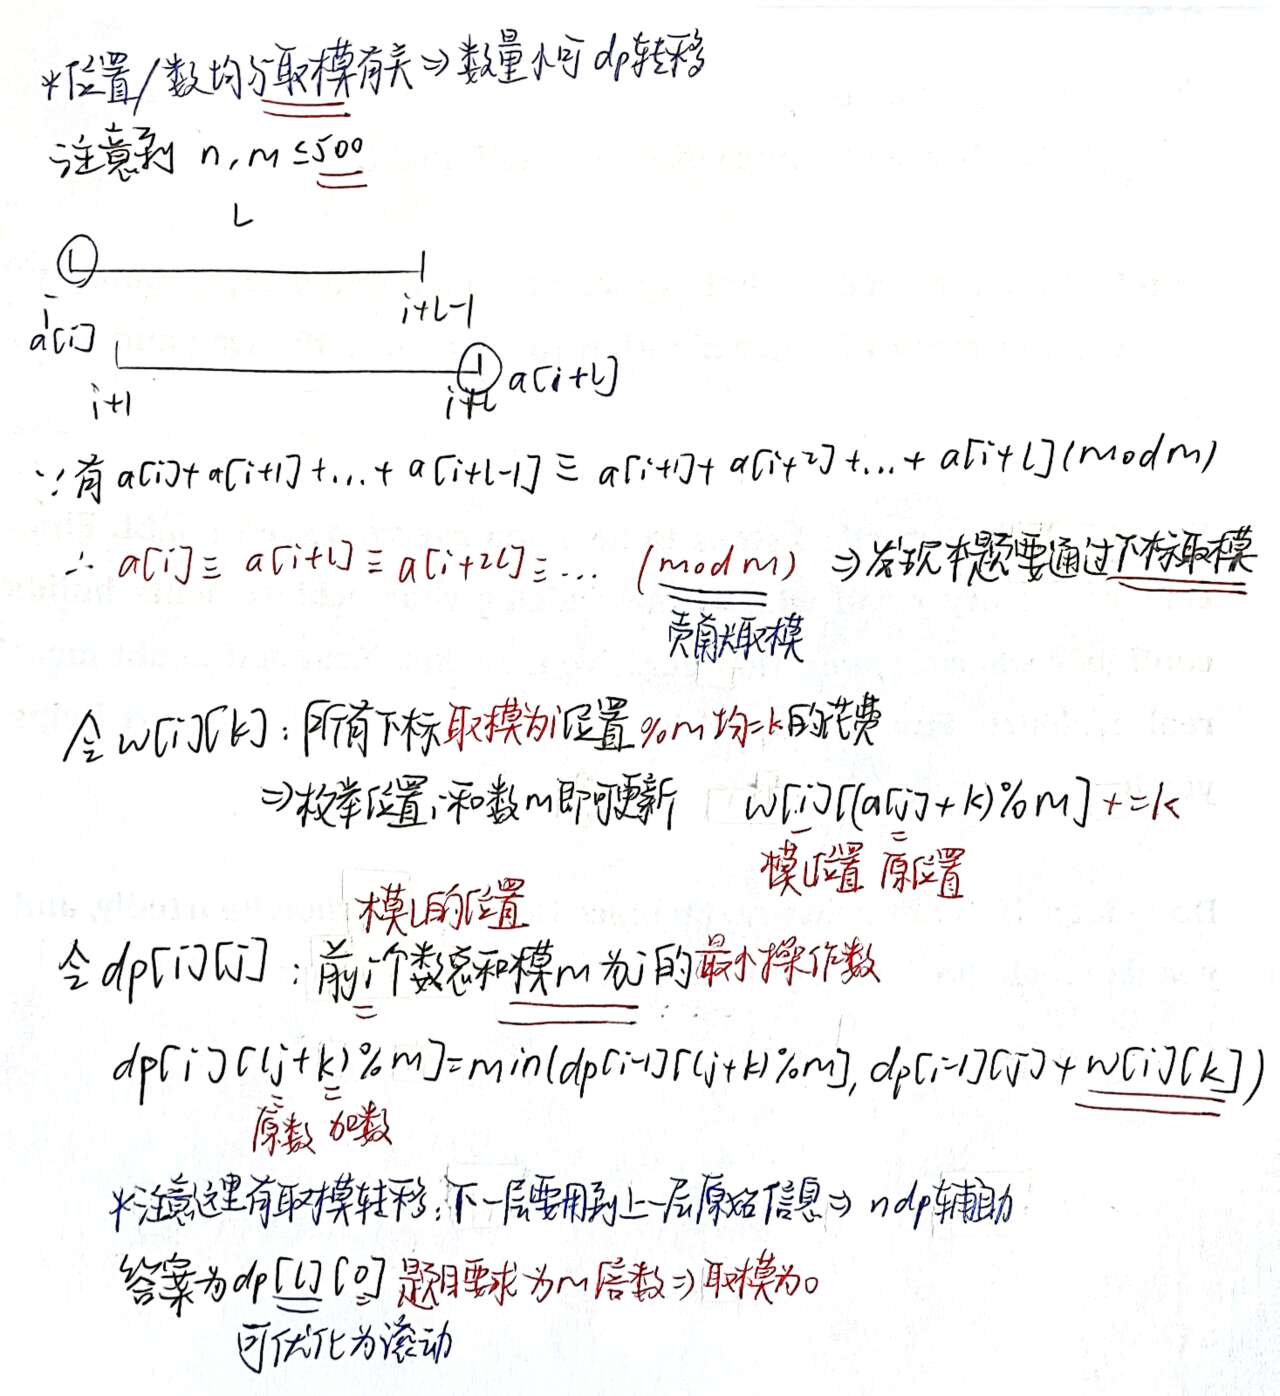 *位置/数均与取模有关⇒数量小可dp转移
注意到 n,m≤500
L
i
a[i]
i+L-1
i+1
i+L
a[i+L]
∵有 a[i]+a[i+1]+...+a[i+L-1]≡a[i+1]+a[i+2]+...+a[i+L](mod m)
∴ a[i]≡a[i+L]≡a[i+2L]≡... (mod m) ⇒发现本题要通过下标取模
贡献取模
令w[i][k]:所有下标取模为i位置%m均=k的花费
⇒枚举位置i和数m即可更新 w[i][(a[j]+k)%m]+=k
模L位置 原位置
模L的位置
令dp[i][j]:前i个数总和模m为j的最小操作数
dp[i][(j+k)%m]=min(dp[i-1][(j+k)%m],dp[i-1][j]+w[i][k])
原数 加数
*注意这里有取模转移,下一层要用到上一层原始信息⇒ndp辅助
答案为dp[L][0] 题目要求为m倍数⇒取模为0
可优化为滚动